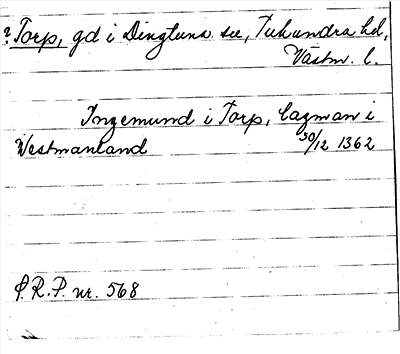 ? Torp, gd i Dingtuna sn, Tuhundra hd,
Västm. l.
Ingemund i Torp, lagman i
Westmanland 30/12 1362
P.R.P. nr. 568